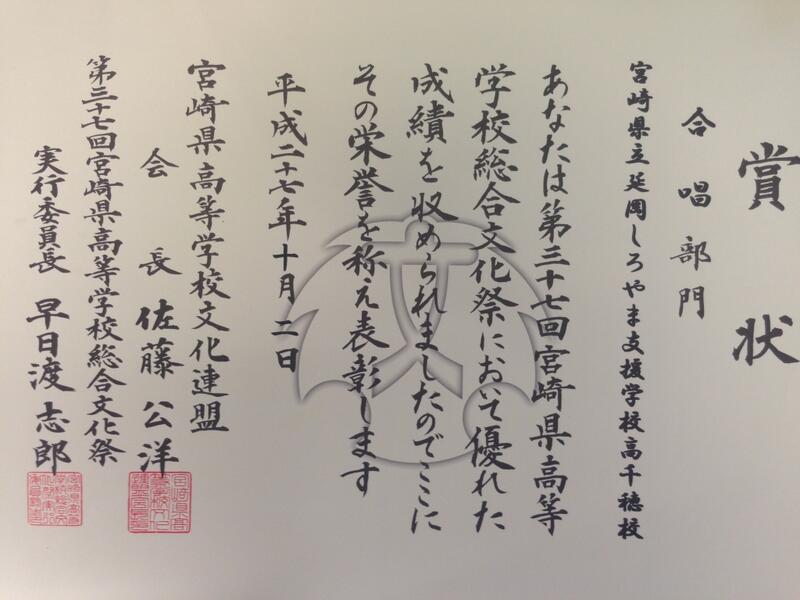 賞状
合唱部門
宮崎県立延岡しろやま支援学校高千穂校
あなたは第三十七回宮崎県高等
学校総合文化祭において優れた
成績を収められましたのでここに
その栄誉を称え表彰します
平成二十七年十月二日
宮崎県高等学校文化連盟
会長 佐藤公洋
第三十七回宮崎県高等学校総合文化祭
実行委員長 早日渡志郎